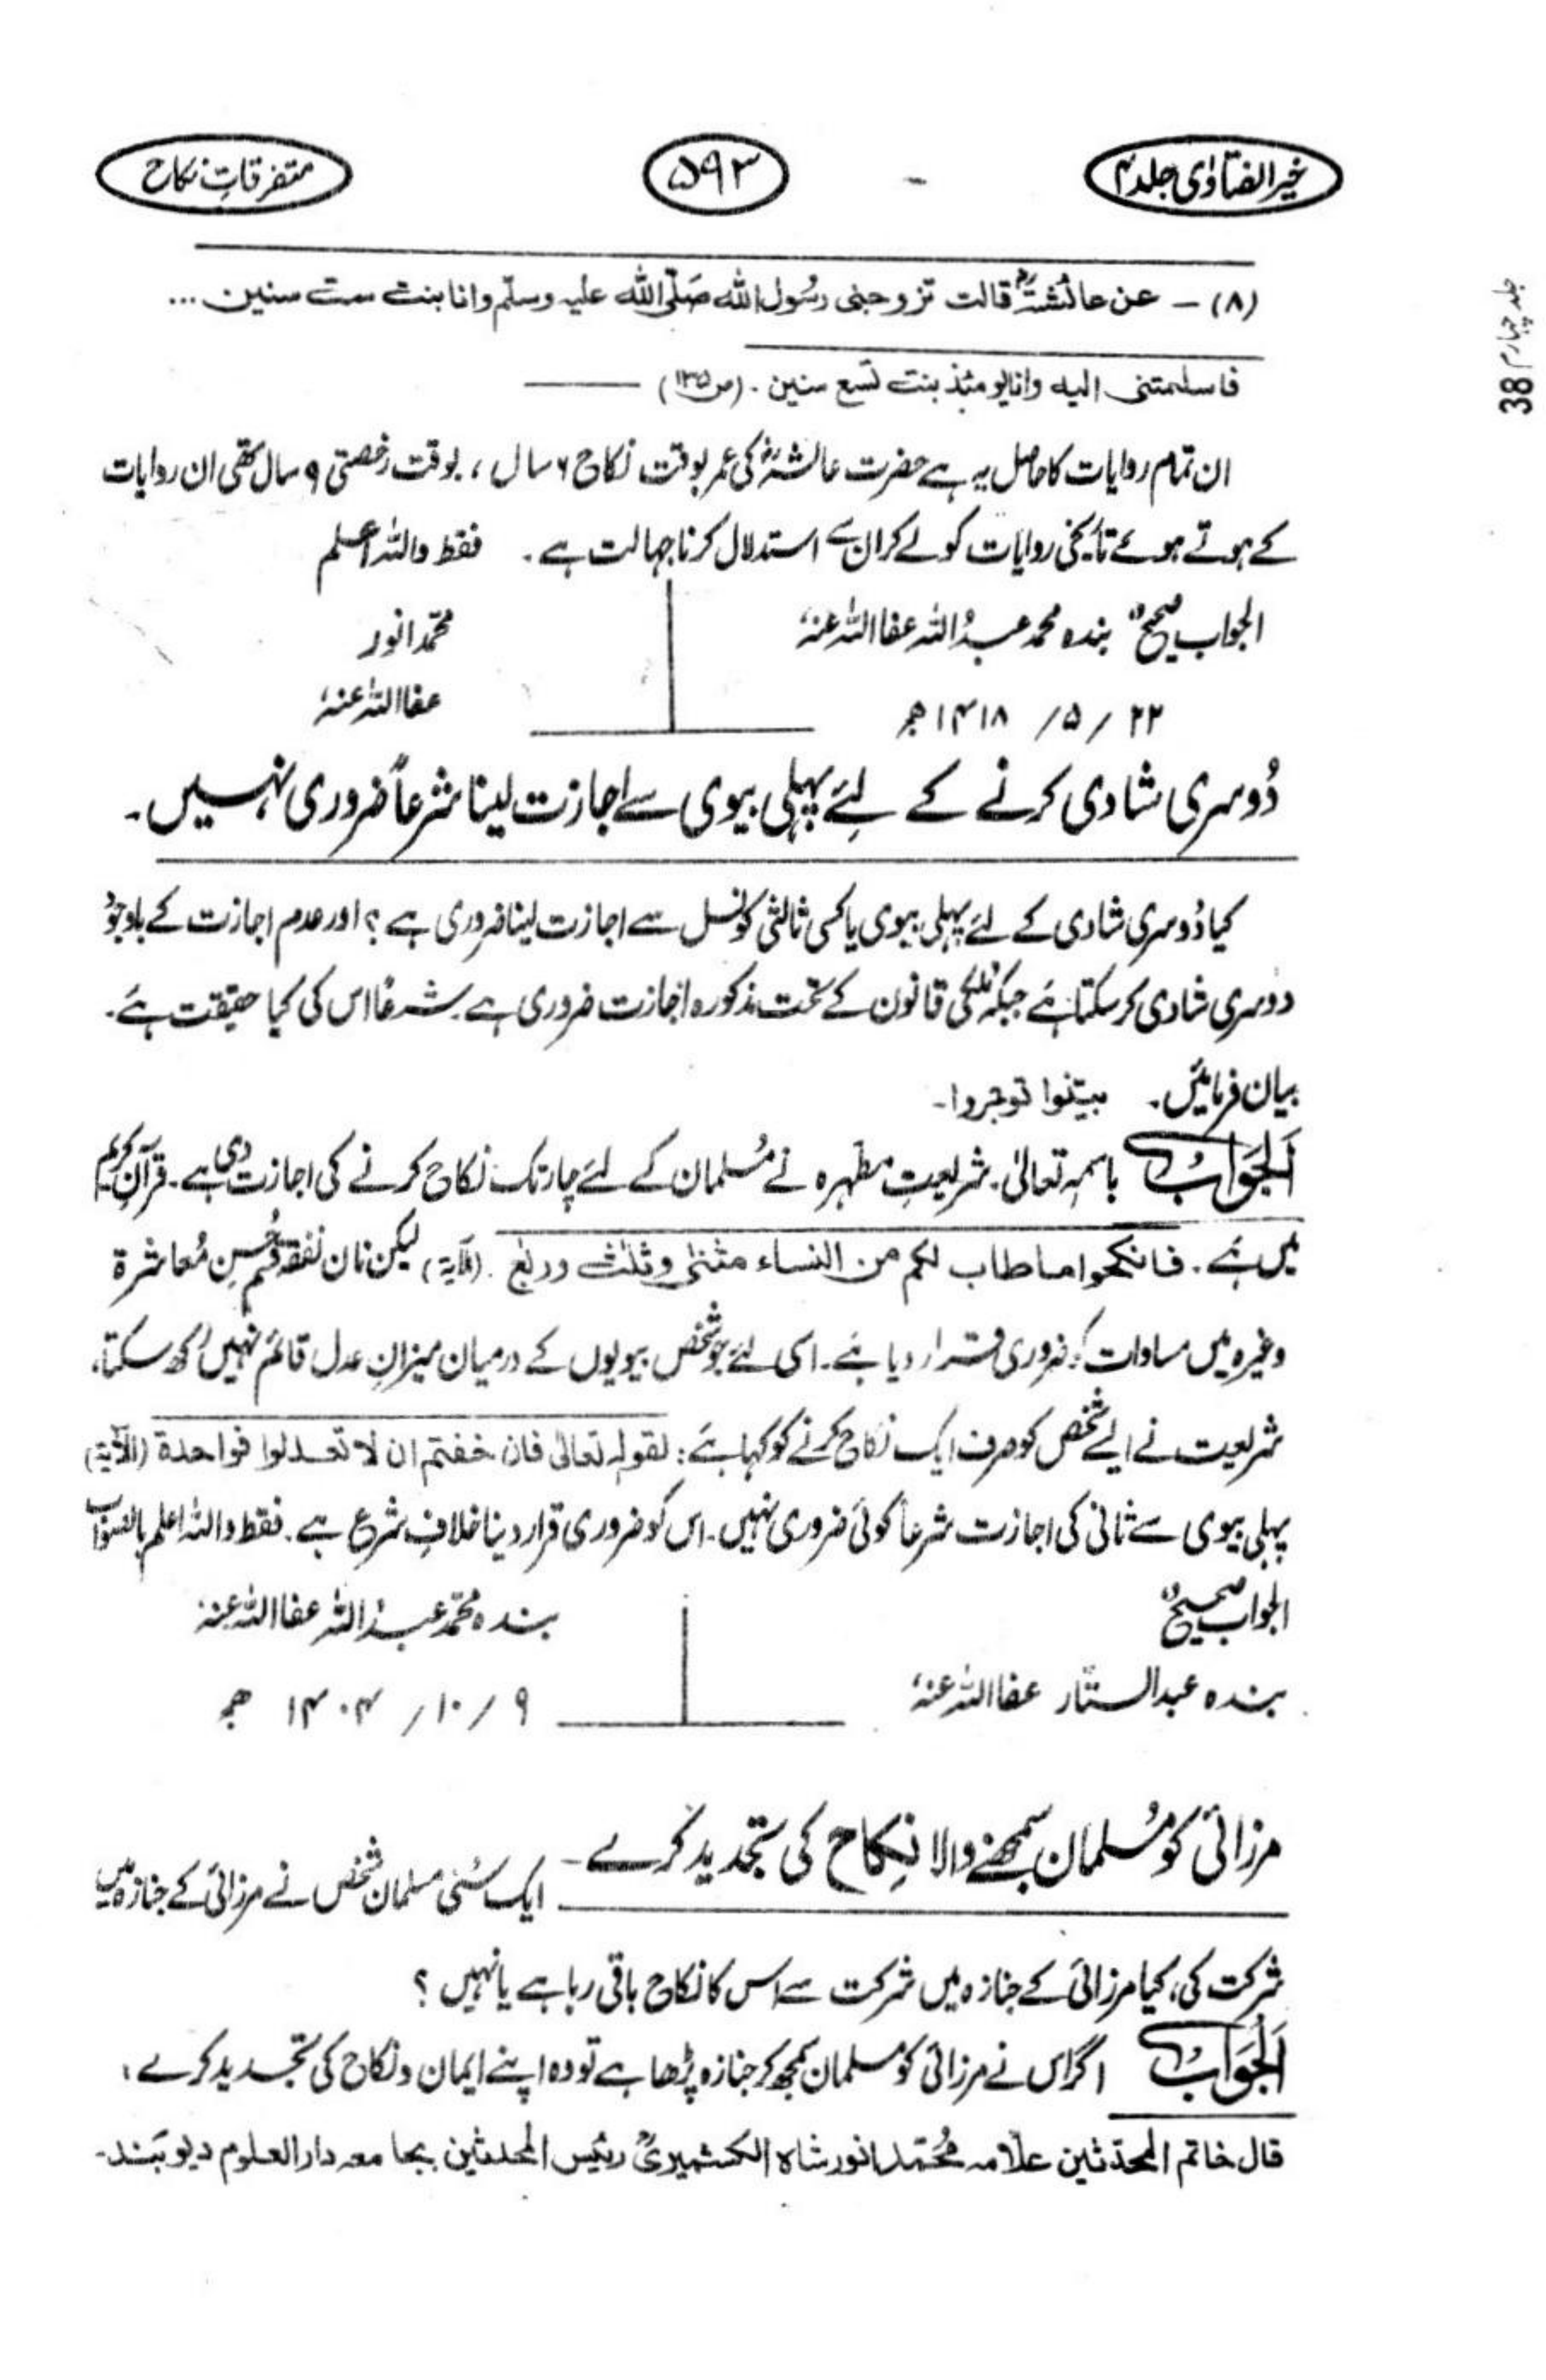 خیر الفتاوٰی جلد ۴
۵۹۳
متفرقاتِ نکاح
(۸) ـ عن عائشۃ رض قالت تزوجنی رسُول اللہ صَلّی اللہ علیہ وسلّم وانا بنت ست سنین ...
فاسلمتنی الیہ وانا یومئذ بنت تسع سنین ۔ (ص ۱۳۵)
ان تمام روایات کا حاصل یہ ہے حضرت عائشہ رض کی عمر بوقت نکاح ۶ سال ، بوقت رخصتی ۹ سال تھی ان روایات
کے ہوتے ہوئے تاریخی روایات کو لے کر ان سے استدلال کرنا جہالت ہے ۔ فقط واللہ اعلم
الجواب صحیح بندہ محمد عبدُ اللہ عفا اللہ عنہٗ
محمّد انور
عفا اللہ عنہٗ
۲۲ / ۵ / ۱۴۱۸ ھ
دُوسری شادی کرنے کے لئے پہلی بیوی سے اجازت لینا شرعاً ضروری نہیں ۔
کیا دُوسری شادی کے لئے پہلی بیوی یا کسی ثالثی کونسل سے اجازت لینا ضروری ہے ؟ اور عدم اجازت کے باوجود
دوسری شادی کر سکتا ہے جبکہ مُلکی قانون کے تحت مذکورہ اجازت ضروری ہے شرعًا اس کی کیا حقیقت ہے ۔
بیان فرمائیں ۔ بیّنوا توجروا ۔
اَلجَوَابُ باسمہٖ تعالیٰ ۔ شریعتِ مطہرہ نے مُسلمان کے لئے چار تک نکاح کرنے کی اجازت دی ہے ۔ قرآنِ کریم
میں ہے ۔ فانکحوا ما طاب لکم من النساء مثنیٰ وثلٰث وربٰع ۔ (الآیۃ) لیکن نان نفقہ قَسم حُسنِ مُعاشرۃ
وغیرہ میں مساوات کو ضروری قرار دیا ہے ۔ اسی لئے جو شخص بیویوں کے درمیان میزانِ عدل قائم نہیں رکھ سکتا،
شریعت نے ایسے شخص کو صرف ایک نکاح کرنے کو کہا ہے : لقولہٖ تعالیٰ فان خفتم ان لا تعدلوا فواحدۃ (الآیۃ)
پہلی بیوی سے ثانی کی اجازت شرعاً کوئی ضروری نہیں ۔ اس کو ضروری قرار دینا خلافِ شرع ہے ۔ فقط واللہ اعلم بالصواب
الجواب صحیح
بندہ محمّد عبدُ اللہ عفا اللہ عنہٗ
بندہ عبد الستّار عفا اللہ عنہٗ
۹ / ۱۰ / ۱۴۰۴ ھ
مرزائی کو مُسلمان سمجھنے والا نِکاح کی تجدید کرے ۔
ایک سُنّی مسلمان شخص نے مرزائی کے جنازہ میں
شرکت کی، کیا مرزائی کے جنازہ میں شرکت سے اس کا نکاح باقی رہا ہے یا نہیں ؟
اَلجَوَابُ اگر اس نے مرزائی کو مسلمان سمجھ کر جنازہ پڑھا ہے تو وہ اپنے ایمان و نکاح کی تجدید کرے ،
قال خاتم المحدّثین علّامہ مُحمّد انور شاہ الکشمیریؒ رئیس المحدثین بجامعہ دار العلوم دیوبند ۔
جلد چہارم 38